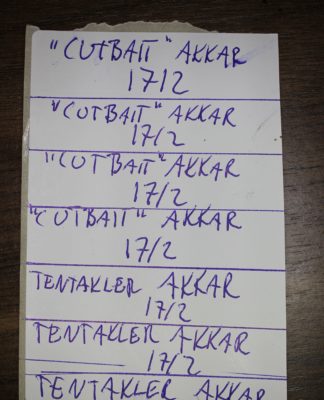 "CUTBAIT" AKKAR
17/2
"CUTBAIT" AKKAR
17/2
"CUTBAIT" AKKAR
17/2
"CUTBAIT" AKKAR
17/2
TENTAKLER AKKAR
17/2
TENTAKLER AKKAR
17/2
TENTAKLER AKKAR